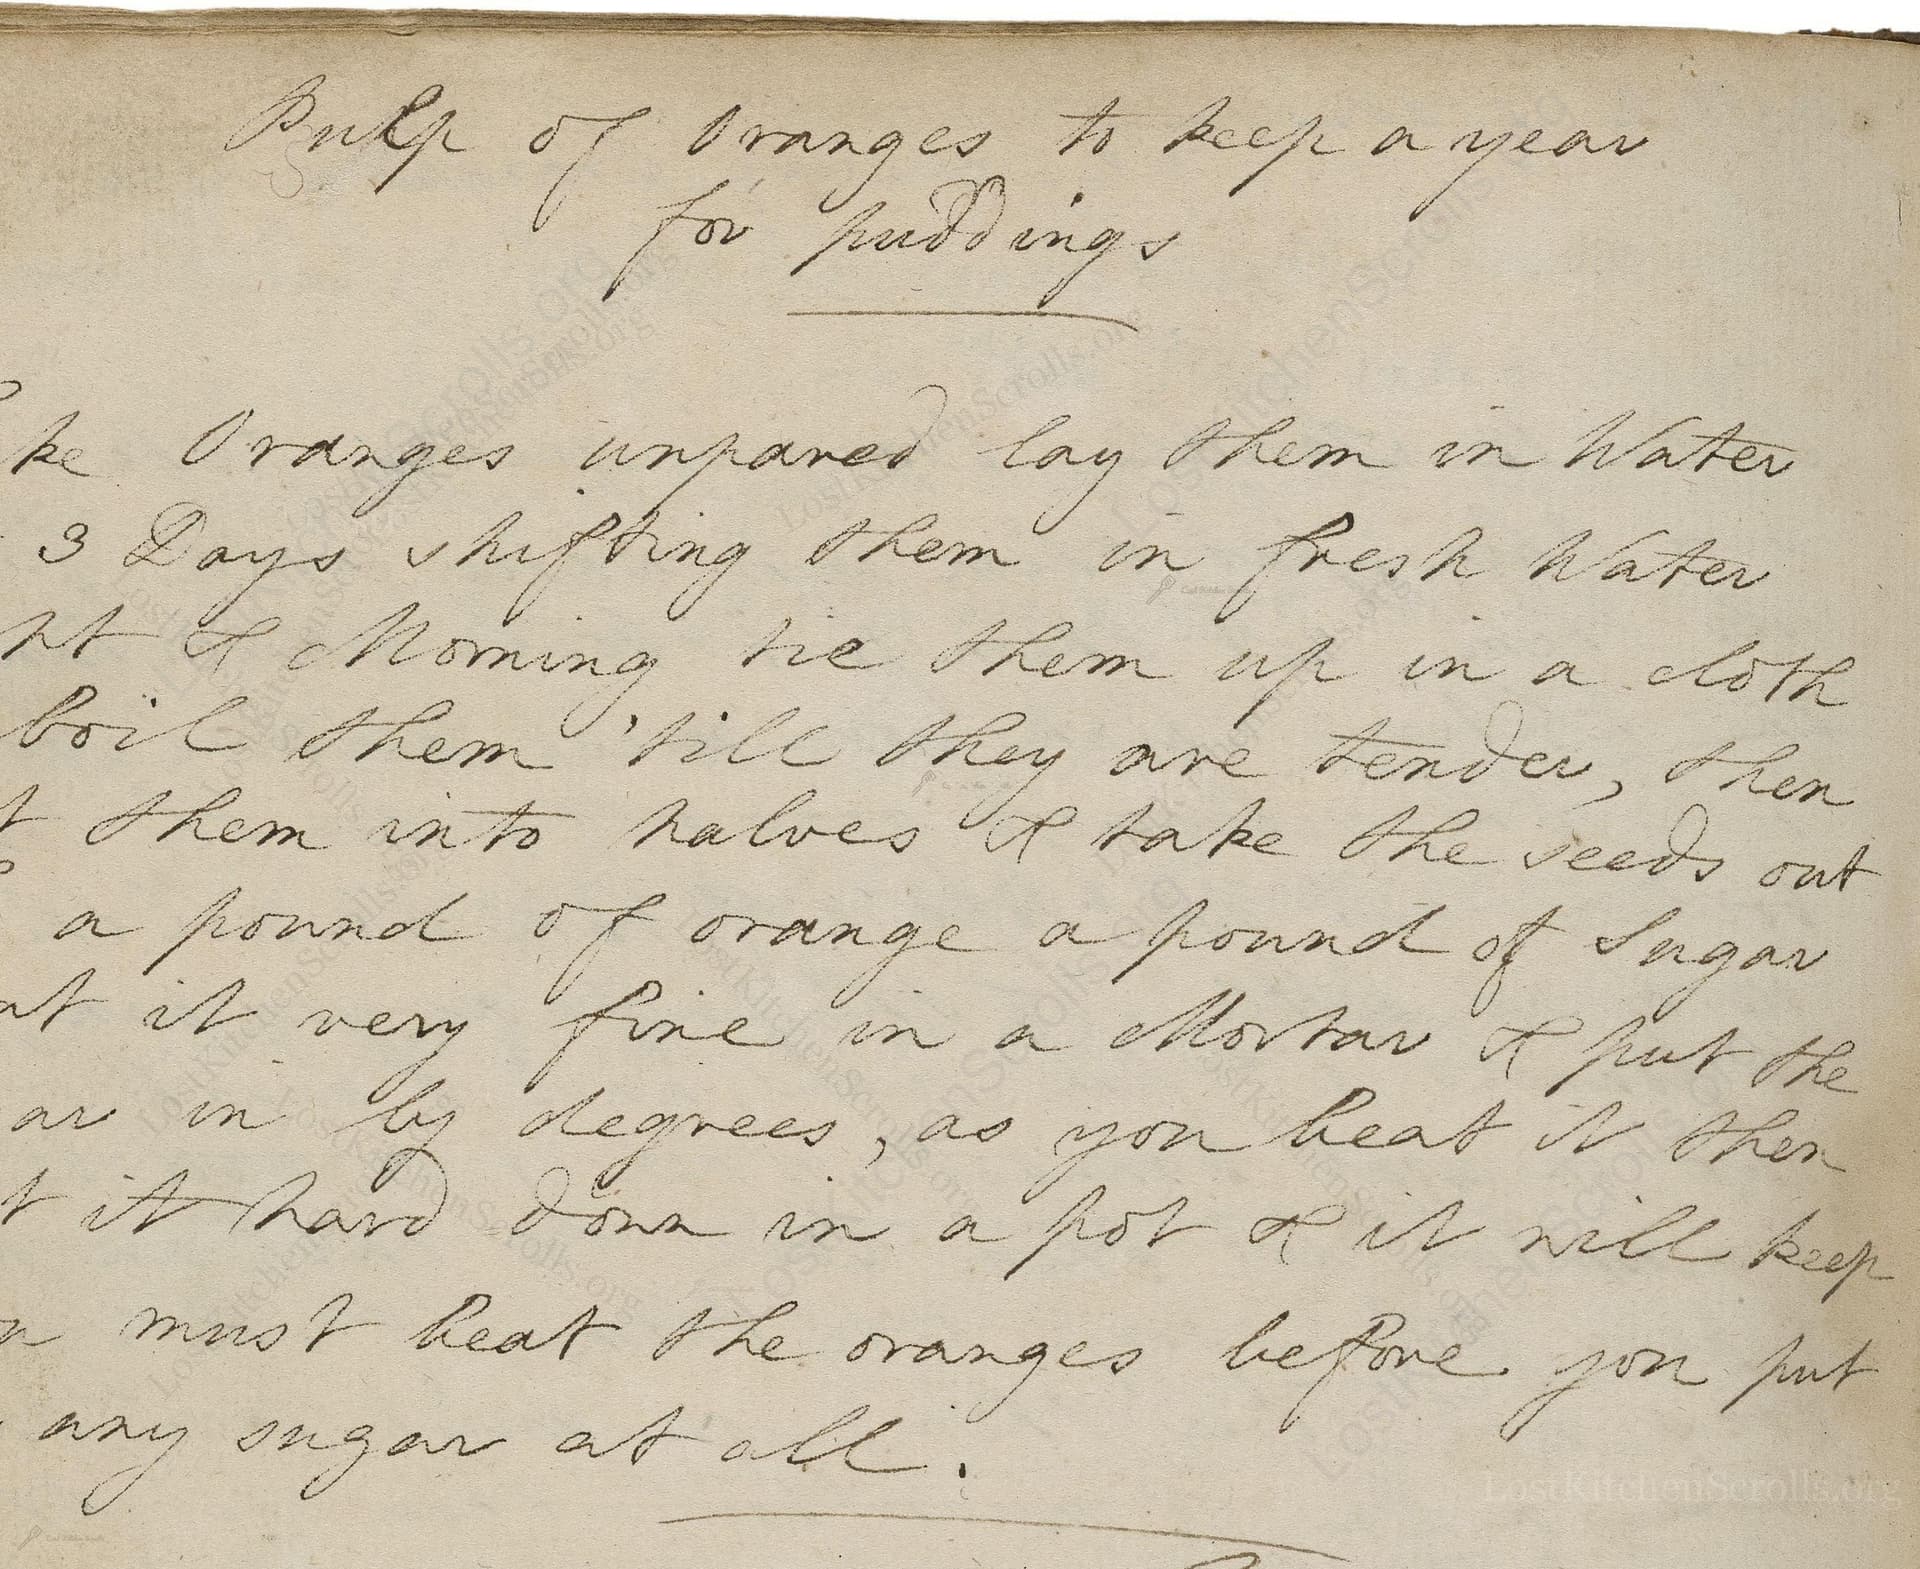 Pulp of Oranges to keep a year
for puddings
ke Oranges unpared lay them in Water
3 Days shifting them in fresh Water
ht & Morning tie them up in a cloth
boil them 'till they are tender, then
t them into halves & take the seeds out
a pound of orange a pound of Sugar
at it very fine in a Mortar & put the
ar in by degrees, as you beat it then
t it hard down in a pot & it will keep
u must beat the oranges before you put
any sugar at all.
LostKitchenScrolls.org